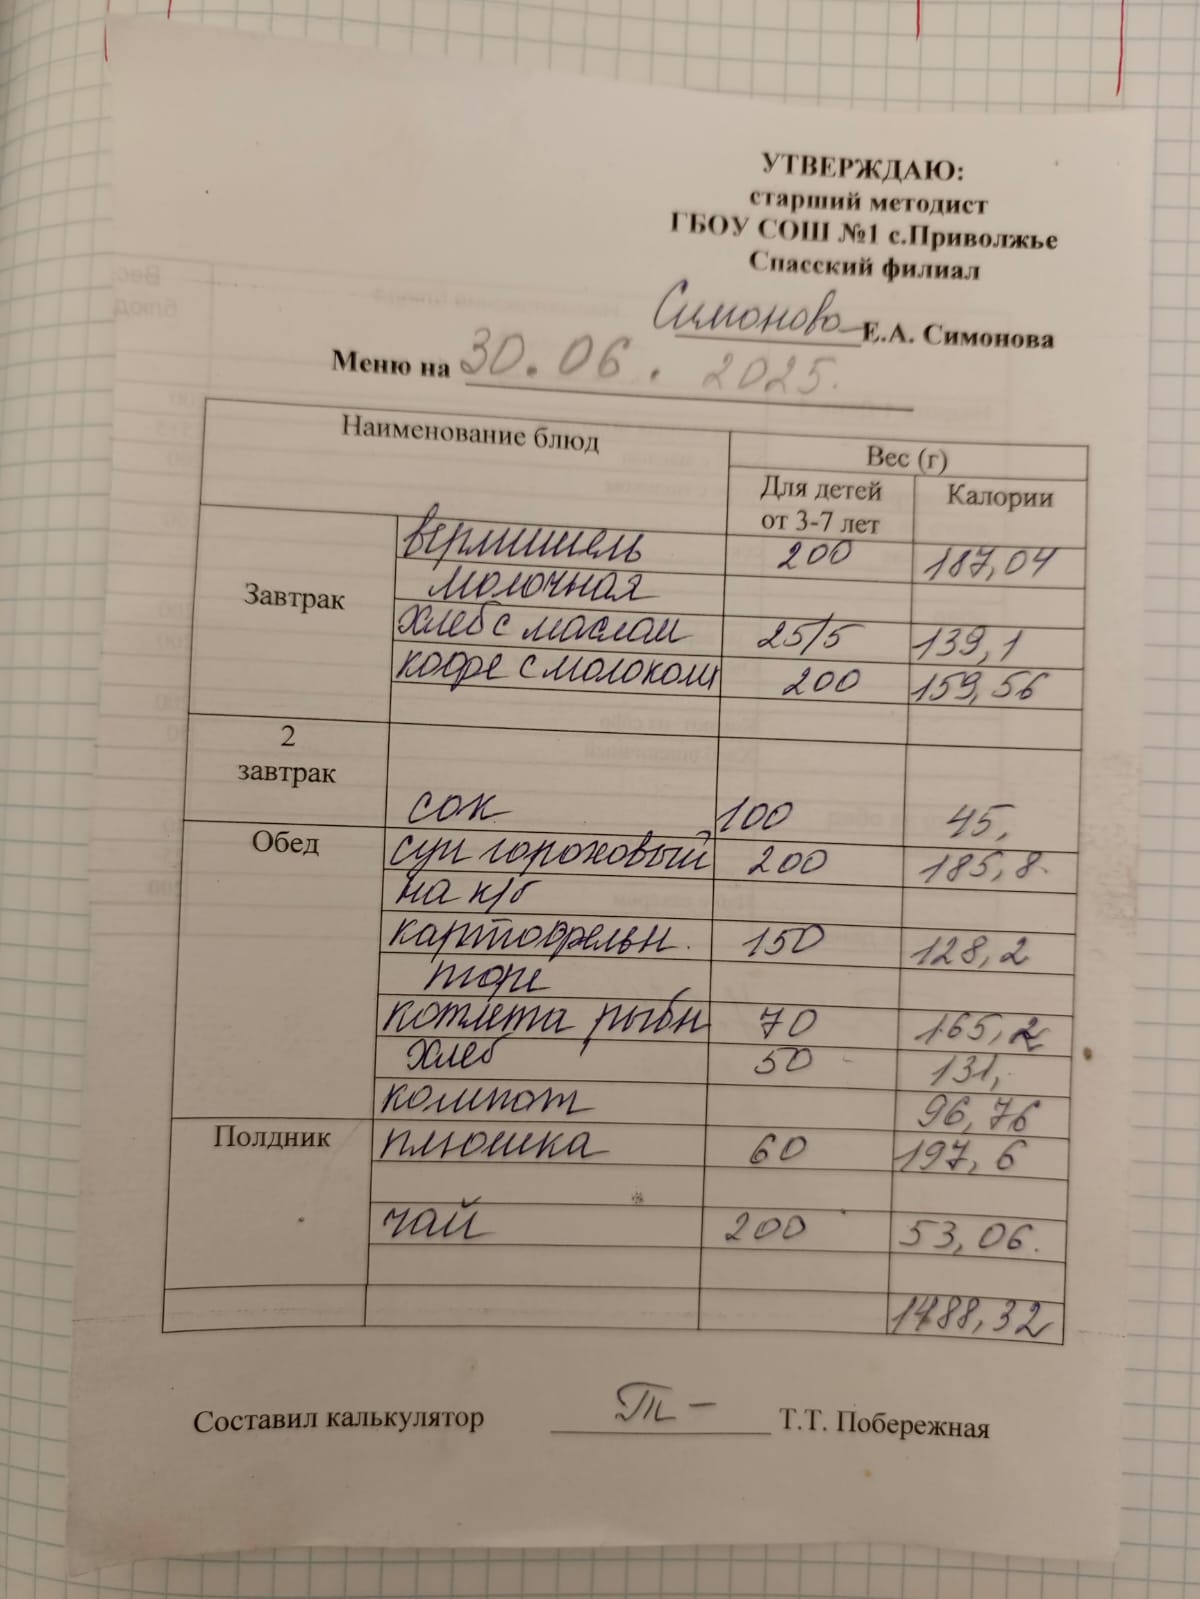 УТВЕРЖДАЮ:
старший методист
ГБОУ СОШ №1 с.Приволжье
Спасский филиал
Симонова Е.А. Симонова
Меню на 30.06.2025.
Наименование блюд Вес (г)
Для детей от 3-7 лет Калории
Завтрак
вермишель 200 187,04
молочная
хлеб с маслом 25/5 139,1
кофе с молоком 200 159,56
2 завтрак
сок 100 45,
Обед
суп гороховый 200 185,8.
на к/б
картофельн. 150 128,2
пюре
котлета рыбн 70 165,2
хлеб 50 131,
компот 96,76
Полдник
плюшка 60 197,6
чай 200 53,06.
1488,32
Составил калькулятор Т.Т. Побережная